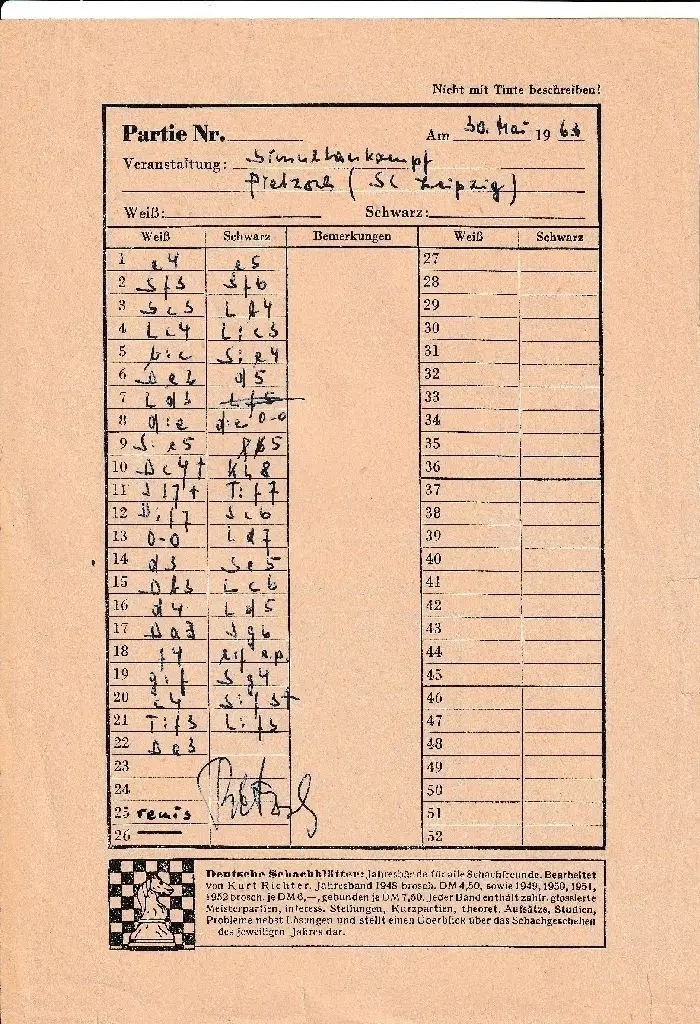 Nicht mit Tinte beschreiben!
Partie Nr. Am 30. Mai 1963
Veranstaltung: Simultankampf
Pietzsch (SC Leipzig)
Weiß: Schwarz:
Weiß Schwarz Bemerkungen Weiß Schwarz
1 e4 e5 27
2 Sf3 Sf6 28
3 Sc3 Lb4 29
4 Lc4 L:c3 30
5 b:c S:e4 31
6 De2 d5 32
7 Ld3 33
8 d:e 0-0 34
9 S:e5 35
10 Dc4† Kh8 36
11 Sf7† T:f7 37
12 D:f7 Sc6 38
13 0-0 Ld7 39
14 d3 Se5 40
15 Lc6 41
16 d4 Ld5 42
17 Da3 Sg6 43
18 f4 e:f e.p. 44
19 g:f Sg4 45
20 c4 S:f3† 46
21 T:f3 L:f3 47
22 De3 48
23 49
24 Pietzsch 50
25 remis 51
26 52
Deutsche Schachblätter: Jahresbände für alle Schachfreunde. Bearbeitet
von Kurt Richter. Jahresband 1948 brosch. DM 4,50, sowie 1949, 1950, 1951,
1952 brosch. je DM 6,—, gebunden je DM 7,50. Jeder Band enthält zahlr. glossierte
Meisterpartien, interess. Stellungen, Kurzpartien, theoret. Aufsätze, Studien,
Probleme nebst Lösungen und stellt einen Überblick über das Schachgeschehen
des jeweiligen Jahres dar.